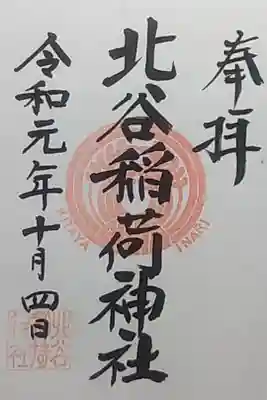 奉拝
北谷稲荷神社
令和元年十月四日
KITAYA
INARI